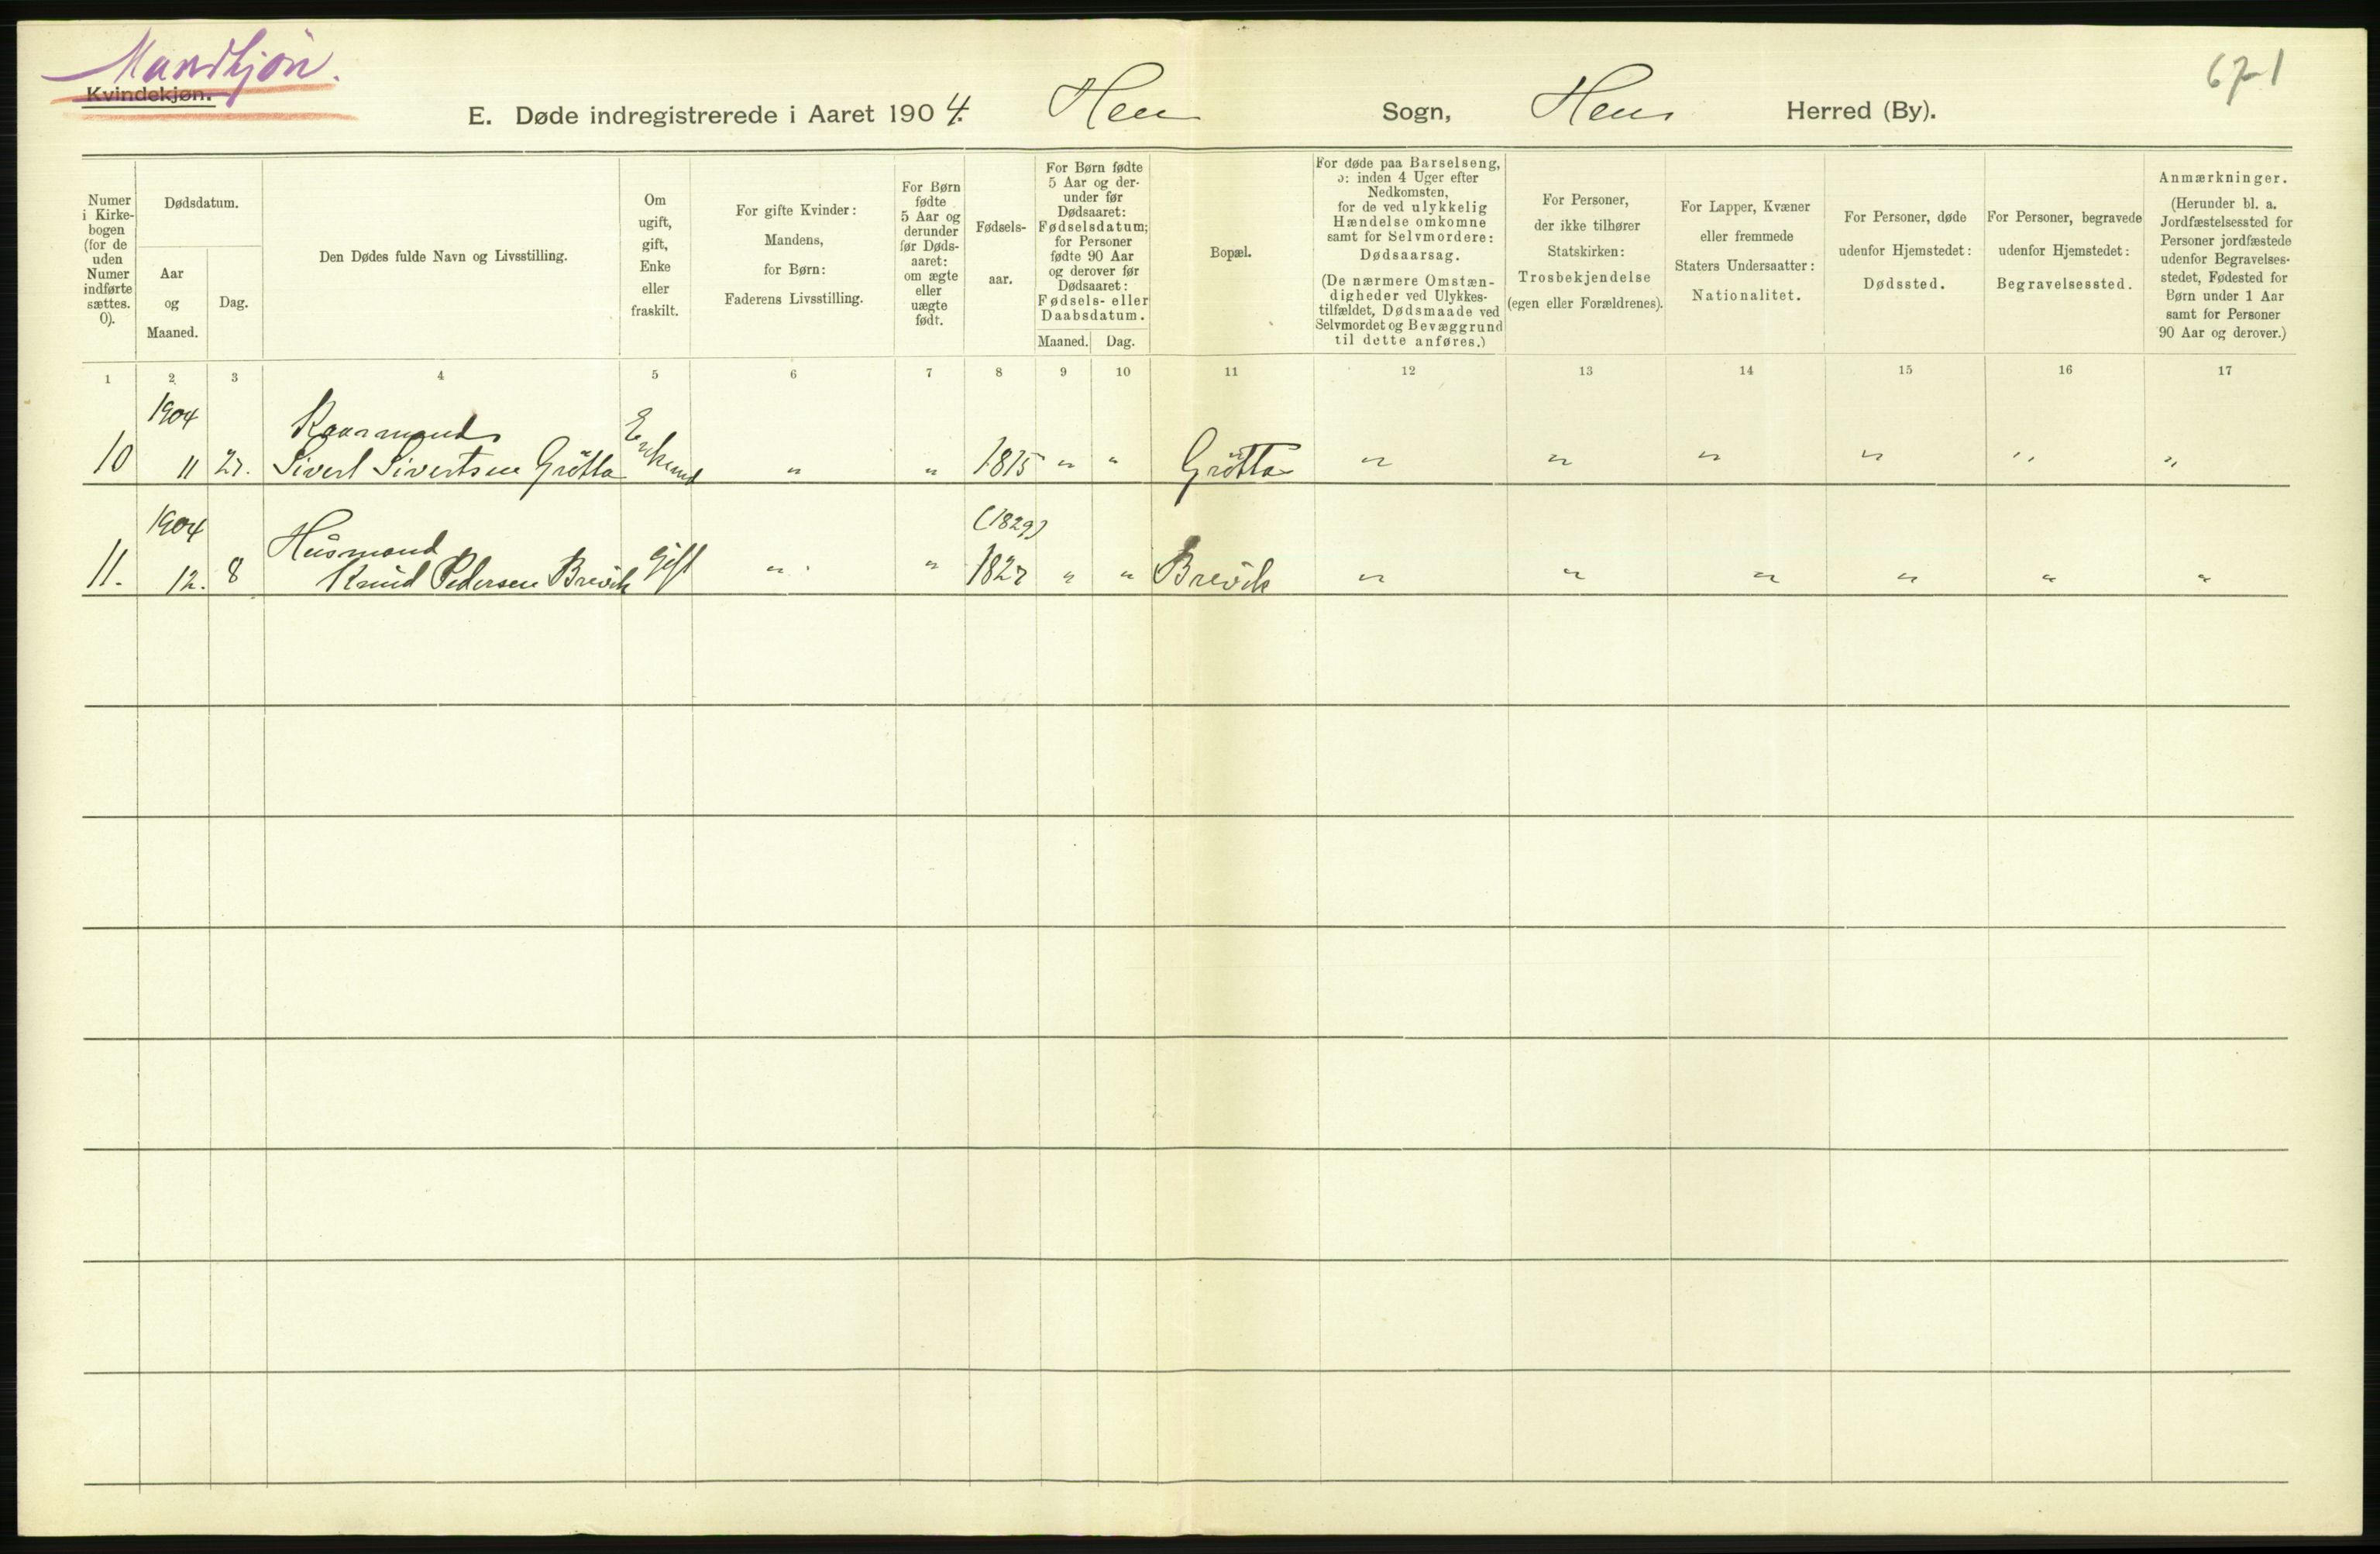 Mandkjøn.
Kvindekjøn.
671
E. Døde indregistrerede i Aaret 1904. Hen Sogn, Hens Herred (By).
Numer i Kirkebogen (for de uden Numer indførte sættes. 0).
Dødsdatum.
Aar og Maaned.
Dag.
Den Dødes fulde Navn og Livsstilling.
Om ugift, gift, Enke eller fraskilt.
For gifte Kvinder: Mandens, for Børn: Faderens Livsstilling.
For Børn fødte 5 Aar og derunder før Dødsaaret: om ægte eller uægte født.
Fødselsaar.
For Børn fødte 5 Aar og derunder før Dødsaaret: Fødselsdatum; for Personer fødte 90 Aar og derover før Dødsaaret: Fødsels- eller Daabsdatum.
Maaned. Dag.
Bopæl.
For døde paa Barselseng, ɔ: inden 4 Uger efter Nedkomsten, for de ved ulykkelig Hændelse omkomne samt for Selvmordere: Dødsaarsag.
(De nærmere Omstændigheder ved Ulykkestilfældet, Dødsmaade ved Selvmordet og Bevæggrund til dette anføres.)
For Personer, der ikke tilhører Statskirken: Trosbekjendelse (egen eller Forældrenes).
For Lapper, Kvæner eller fremmede Staters Undersaatter: Nationalitet.
For Personer, døde udenfor Hjemstedet: Dødssted.
For Personer, begravede udenfor Hjemstedet: Begravelsessted.
Anmærkninger.
(Herunder bl. a. Jordfæstelsessted for Personer jordfæstede udenfor Begravelsesstedet, Fødested for Børn under 1 Aar samt for Personer 90 Aar og derover.)
1 2 3 4 5 6 7 8 9 10 11 12 13 14 15 16 17
1904 Kaarmand
10 11 27. Sivert Sivertsen Grötta Enkemand " " 1815 " " Grötta " " " " " "
1904 Husmand (1829)
11. 12. 8 Knud Pedersen Brevik gift " " 1827 " " Brevik " " " " " "